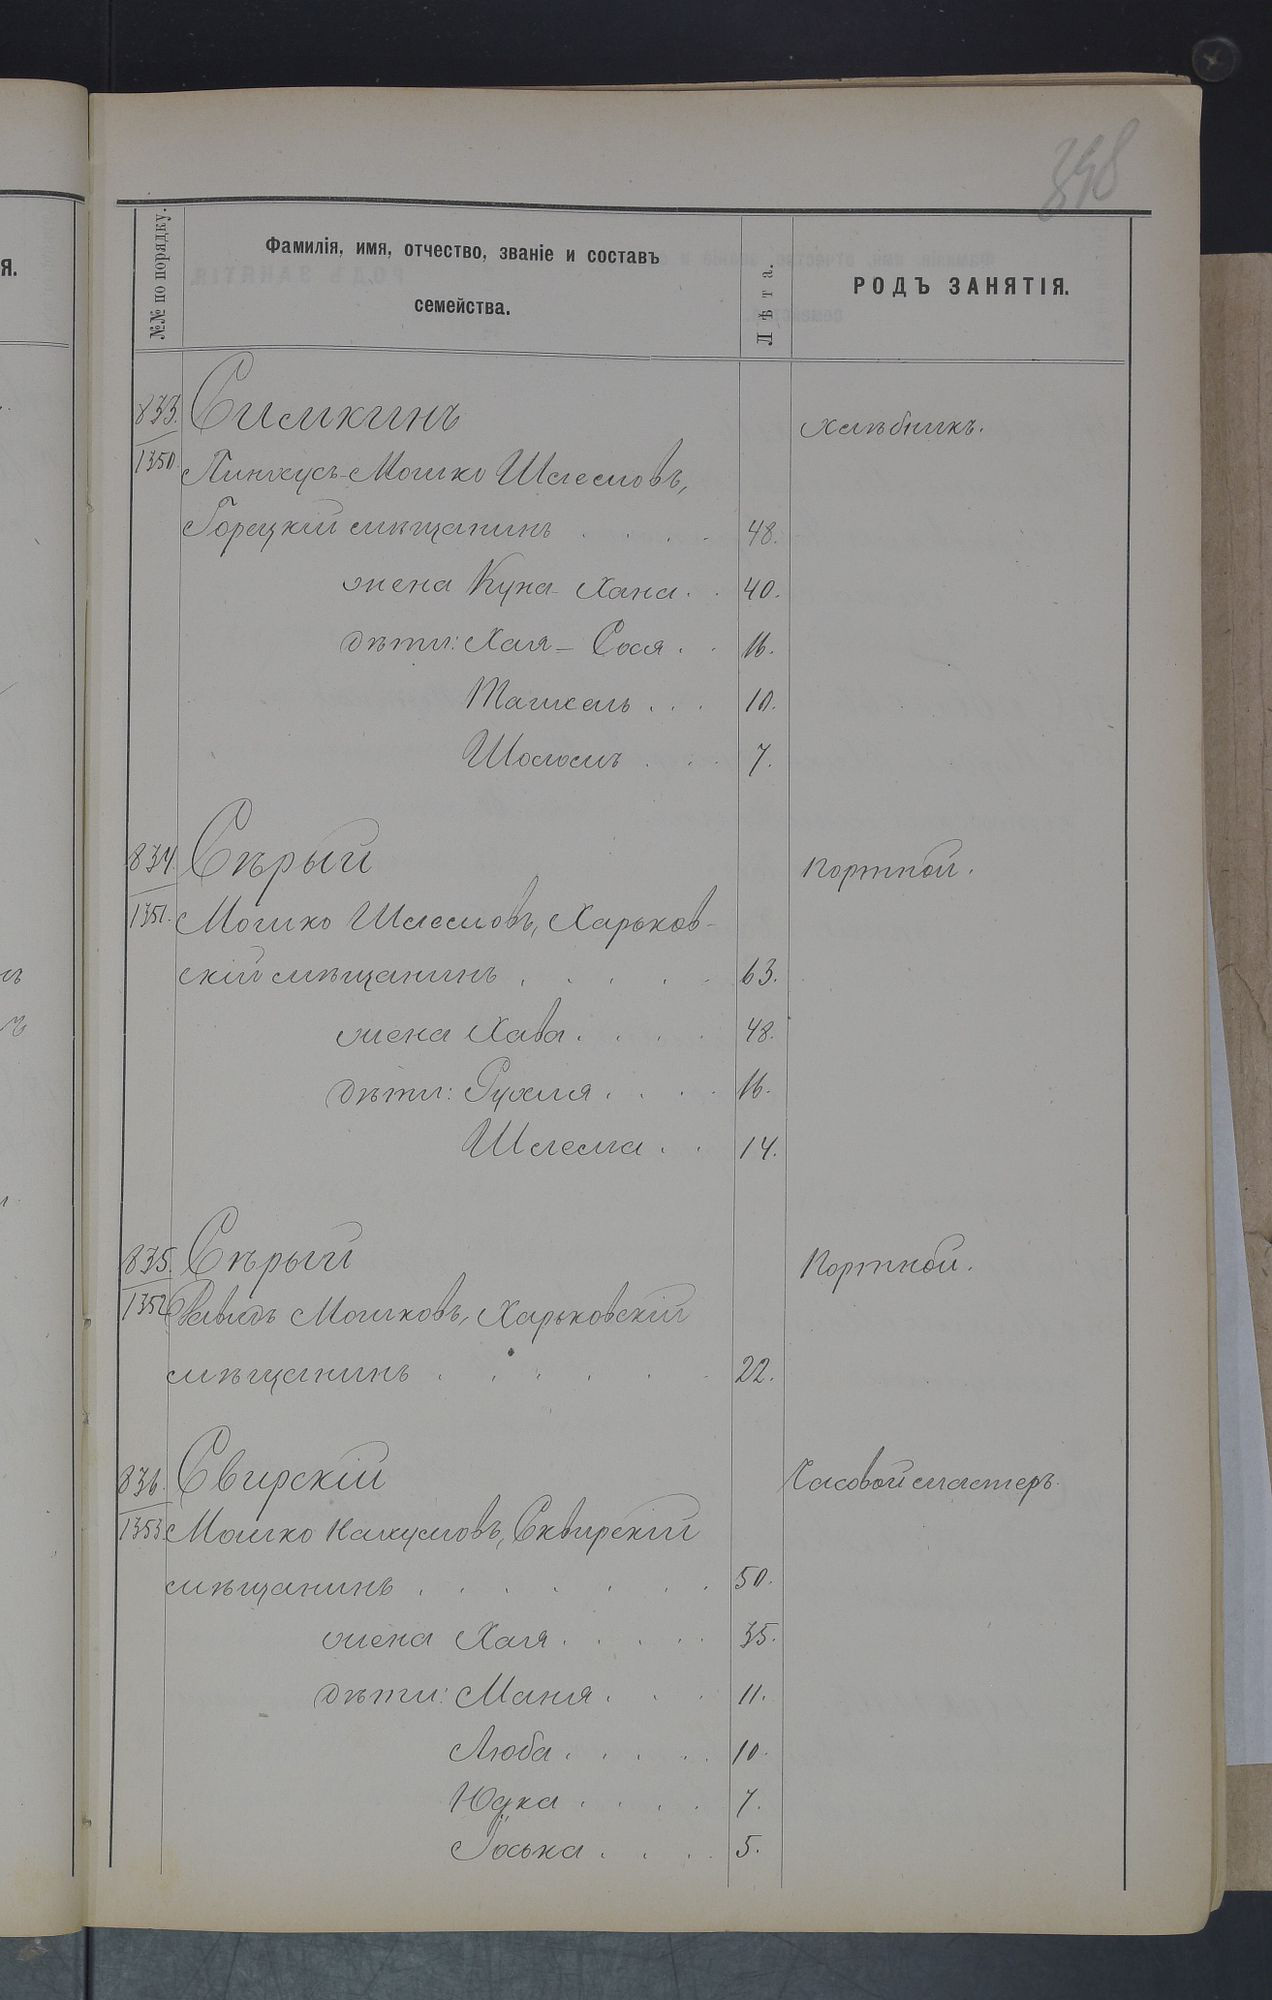 398
№№ по порядку.
Фамилія, имя, отчество, званіе и составъ
семейства.
Лѣта.
РОДЪ ЗАНЯТІЯ.
833. Симкинъ хлѣбникъ.
1350. Пинхусъ-Мошко Шлемовъ,
Горецкій мѣщанинъ . . . . 48.
жена Куна-Хана . . 40.
дѣти: Хая-Сося . . 16.
Машкель . . . 10.
Шоломъ . . . 7.
834. Сѣрый портной.
1351. Мошко Шлемовъ, Харьков-
скій мѣщанинъ . . . . . 63.
жена Хава . . . . 48.
дѣти: Рухля . . . . 16.
Шлема . . 14.
835. Сѣрый Портной.
1352. Давидъ Мошковъ, Харьковскій
мѣщанинъ . . . . . . 22.
836. Свирскій Часовой мастеръ.
1353. Мошко Нахумовъ, Сквирскій
мѣщанинъ . . . . . . . 50.
жена Хая . . . . . 35.
дѣти: Маня . . . 11.
Люба . . . . . 10.
Юдка . . . . 7.
Іоська . . . . 5.
я.